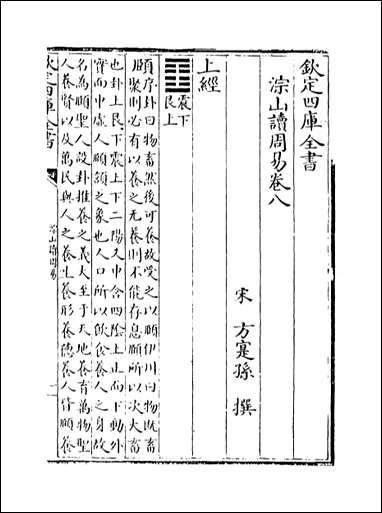 欽定四庫全書
淙山讀周易卷八
宋 方寔孫 撰
上經
震下
艮上
頤序卦曰物畜然後可養故受之以頤伊川曰物既畜
聚則必有以養之无養則不能存息頤所以次大畜
也卦上艮下震上下二陽爻中含四陰上止而下動外
實而中虚人頤頷之象也人口所以飲食養人之身故
名為頤聖人設卦推養之義大至于天地養育萬物聖
人養賢以及萬民與人之養生養形養德養人皆頤養
欽定四庫全書
淙山讀周易
一